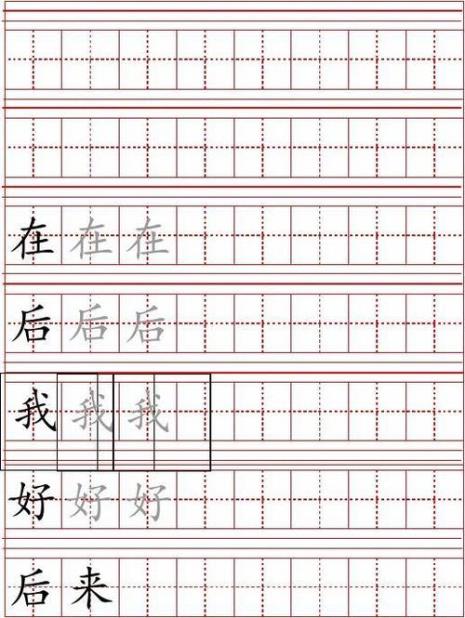 在在在
后后后
我我我
好好好
后来